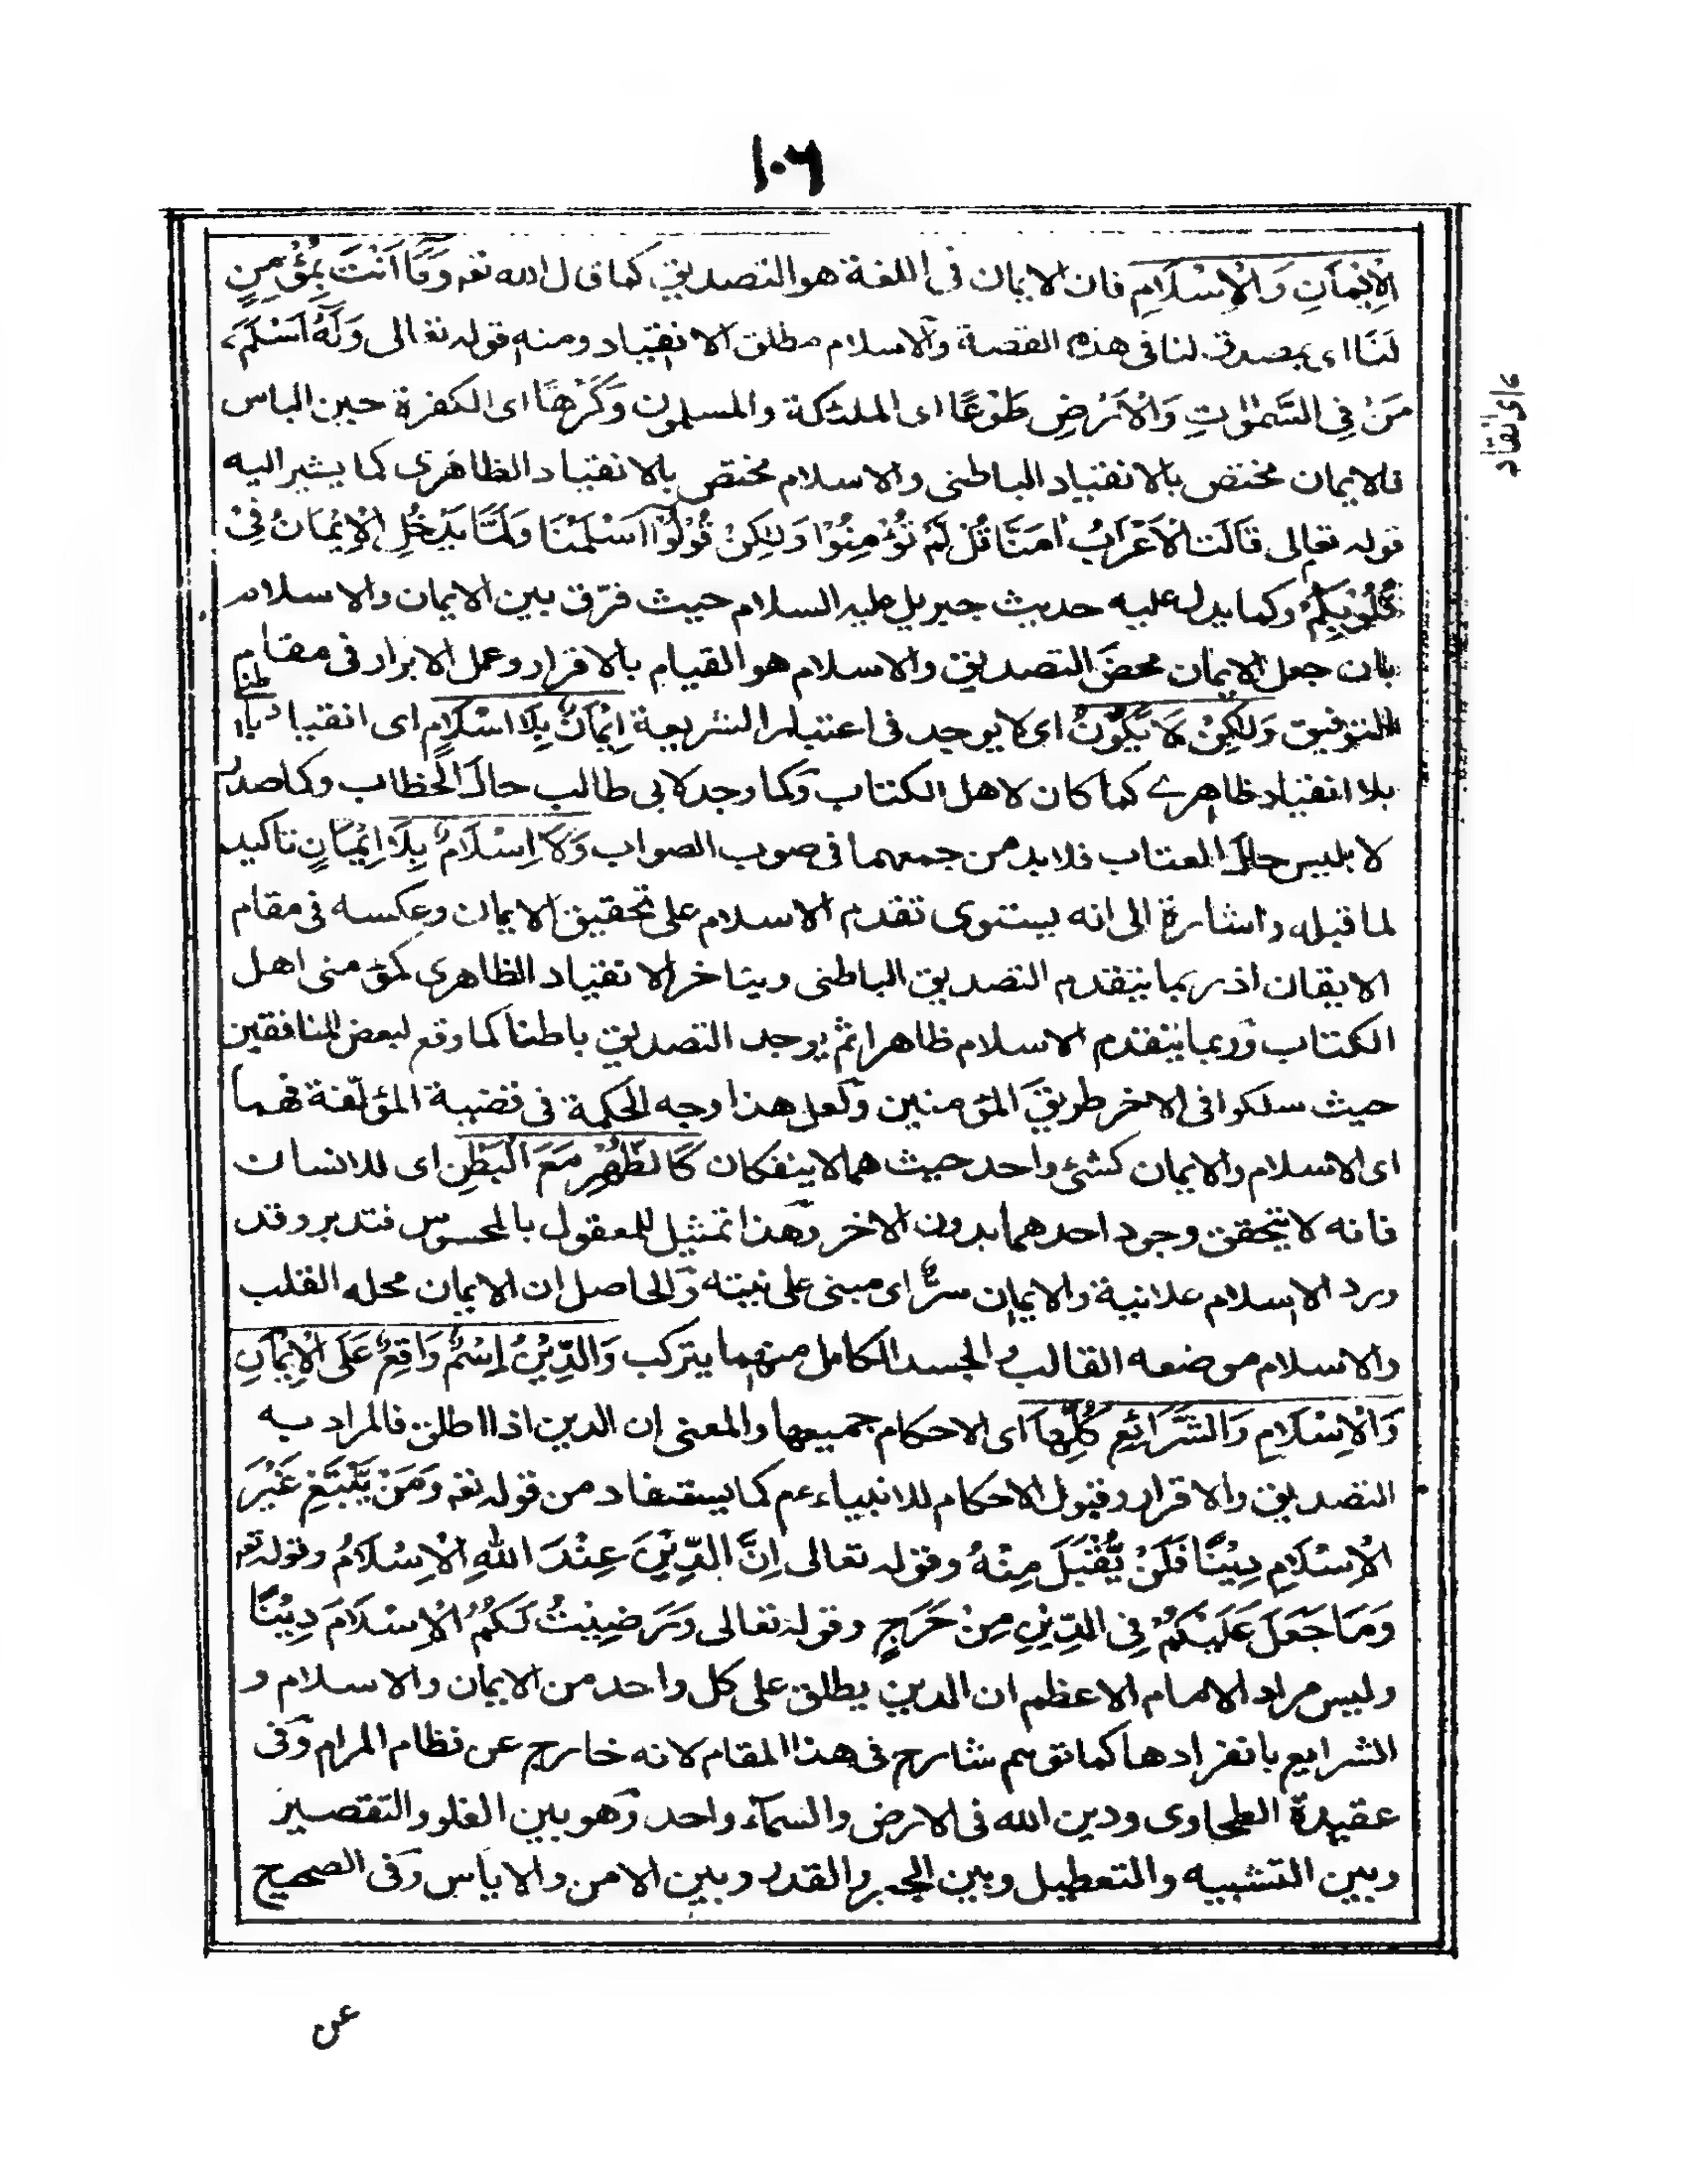 ١٠٦
الْاِيْمَانِ وَالْاِسْلَامِ فان الايمان فى اللغة هو التصديق كما قال الله تعه وَمَا اَنْتَ بِمُؤْمِنٍ
لَنَا اى بمصدق لنا فى هذه القصة والاسلام مطلق الانقياد ومنه قوله تعالى وَلَهٗ اَسْلَمَ
مَنْ فِى السَّمٰوٰتِ وَالْاَرْضِ طَوْعًا اى الملئكة والمسلمون وَكَرْهًا اى الكفرة حين الباس
فالايمان مختص بالانقياد الباطنى والاسلام مختص بالانقياد الظاهرى كما يشير اليه
قوله تعالى قَالَتِ الْاَعْرَابُ اٰمَنَّا قُلْ لَمْ تُؤْمِنُوْا وَلٰكِنْ قُوْلُوْا اَسْلَمْنَا وَلَمَّا يَدْخُلِ الْاِيْمَانُ فِىْ
قُلُوْبِكُمْ وكما يدل عليه حديث جبريل عليه السلام حيث فرّق بين الايمان والاسلام
بان جعل الايمان محضَ التصديق والاسلام هو القيام بالاقرار وعمل الابرار فى مقام
التوفيق وَلٰكِنْ لَا يَكُوْنُ اى لا يوجد فى اعتبار الشريعة اِيْمَانٌ بِلَا اِسْلَامٍ اى انقياد باطنا
بلا انقياد ظاهرے كما كان لاهل الكتاب وكما وجد لابى طالب حالَ الخطاب وكما صدر
لابليس حالَ العتاب فلابد من جمعهما فى صوب الصواب وَلَا اِسْلَامٌ بِلَا اِيْمَانٍ تاكيد
لما قبله واشارة الى انه يستوى تقدم الاسلام على تحقيق الايمان وعكسه فى مقام
الايقان اذ ربما يتقدم التصديق الباطنى ويتاخر الانقياد الظاهرى كمؤمنى اهل
الكتاب وربما يتقدم الاسلام ظاهرا ثم يوجد التصديق باطنا كما وقع لبعض المنافقين
حيث سلكوا فى الاخر طريقَ المؤمنين ولعل هذا وجه الحكمة فى قضية المؤلّفة فهما
اى الاسلام والايمان كشئ واحد حيث هما لا ينفكان كَالظَّهْرِ مَعَ الْبَطْنِ اى للانسان
فانه لا يتحقق وجود احدهما بدون الاخر وهذا تمثيل للمعقول بالمحسوس فتدبر وقد
ورد الاسلام علانية والايمان سرٌّ اى مبنى على نيته والحاصل ان الايمان محله القلب
والاسلام موضعه القالب والجسد الكامل منهما يتركب وَالدِّيْنُ اِسْمٌ وَاقِعٌ عَلَى الْاِيْمَانِ
وَالْاِسْلَامِ وَالشَّرَائِعِ كُلِّهَا اى الاحكام جميعها والمعنى ان الدين اذا اطلق فالمراد به
التصديق والاقرار وقبول الاحكام للانبياء عم كما يستفاد من قوله تعه وَمَنْ يَّبْتَغِ غَيْرَ
الْاِسْلَامِ دِيْنًا فَلَنْ يُّقْبَلَ مِنْهُ وقوله تعالى اِنَّ الدِّيْنَ عِنْدَ اللهِ الْاِسْلَامُ وقوله تعه
وَمَا جَعَلَ عَلَيْكُمْ فِى الدِّيْنِ مِنْ حَرَجٍ وقوله تعالى وَرَضِيْتُ لَكُمُ الْاِسْلَامَ دِيْنًا
وليس مراد الامام الاعظم ان الدين يطلق على كل واحد من الايمان والاسلام و
الشرايع بانفرادها كما توهم شارح فى هذا المقام لانه خارج عن نظام المرام وفى
عقيدة الطحاوى ودين الله فى الارض والسمآء واحد وهو بين الغلو والتقصير
وبين التشبيه والتعطيل وبين الجبر والقدر وبين الامن والاياس وفى الصحيح
عن
اى انقاد